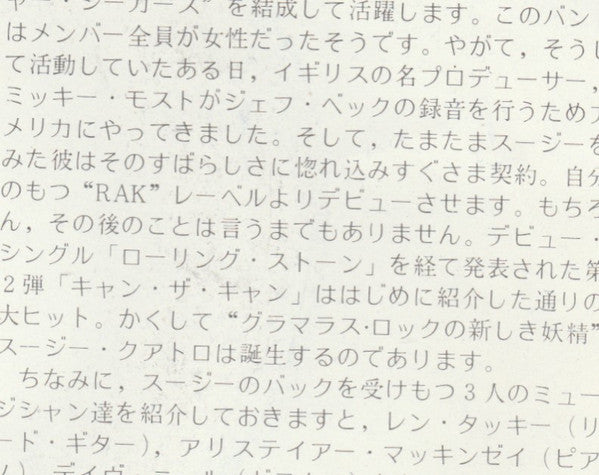 ャー・シーカーズ”を結成して活躍します。このバン
はメンバー全員が女性だったそうです。やがて，そうし
て活動していたある日，イギリスの名プロデューサー，
ミッキー・モストがジェフ・ベックの録音を行うためア
メリカにやってきました。そして，たまたまスージーを
みた彼はそのすばらしさに惚れ込みすぐさま契約。自分
のもつ“RAK”レーベルよりデビューさせます。もちろ
ん，その後のことは言うまでもありません。デビュー・
シングル「ローリング・ストーン」を経て発表された第
2弾「キャン・ザ・キャン」ははじめに紹介した通りの
大ヒット。かくして“グラマラス・ロックの新しき妖精”
スージー・クアトロは誕生するのであります。
ちなみに，スージーのバックを受けもつ3人のミュー
ジシャン達を紹介しておきますと，レン・タッキー（リ
ード・ギター），アリステイアー・マッキンゼイ（ピア